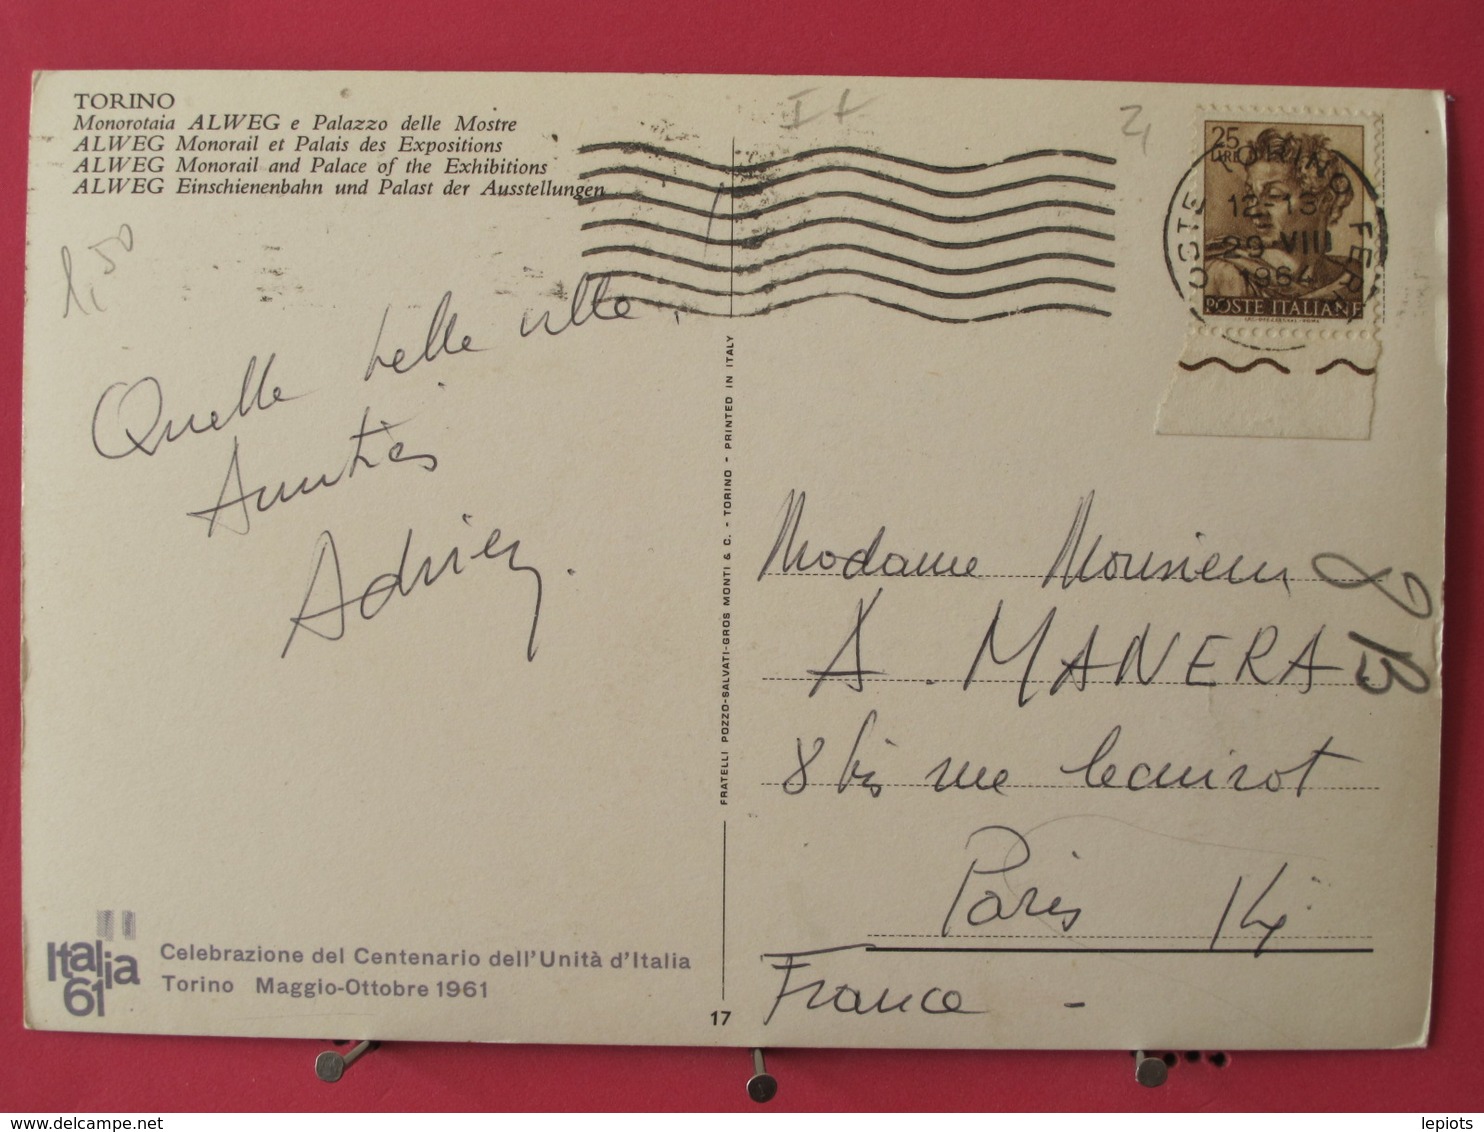 TORINO
Monorotaia ALWEG e Palazzo delle Mostre
ALWEG Monorail et Palais des Expositions
ALWEG Monorail and Palace of the Exhibitions
ALWEG Einschienenbahn und Palast der Ausstellungen
1,50
Quelle belle ville.
Amitiés
Adrien.
Italia
61
Celebrazione del Centenario dell'Unità d'Italia
Torino Maggio-Ottobre 1961
FRATELLI POZZO-SALVATI-GROS MONTI & C. - TORINO - PRINTED IN ITALY
17
It
25
LIRE
POSTE ITALIANE
TORINO FERR POSTE
12-13
29 VIII
1964
Madame Monsieur
A. MANERA
8 bis rue Lecuirot
Paris 14
France -
8 B
lepiots